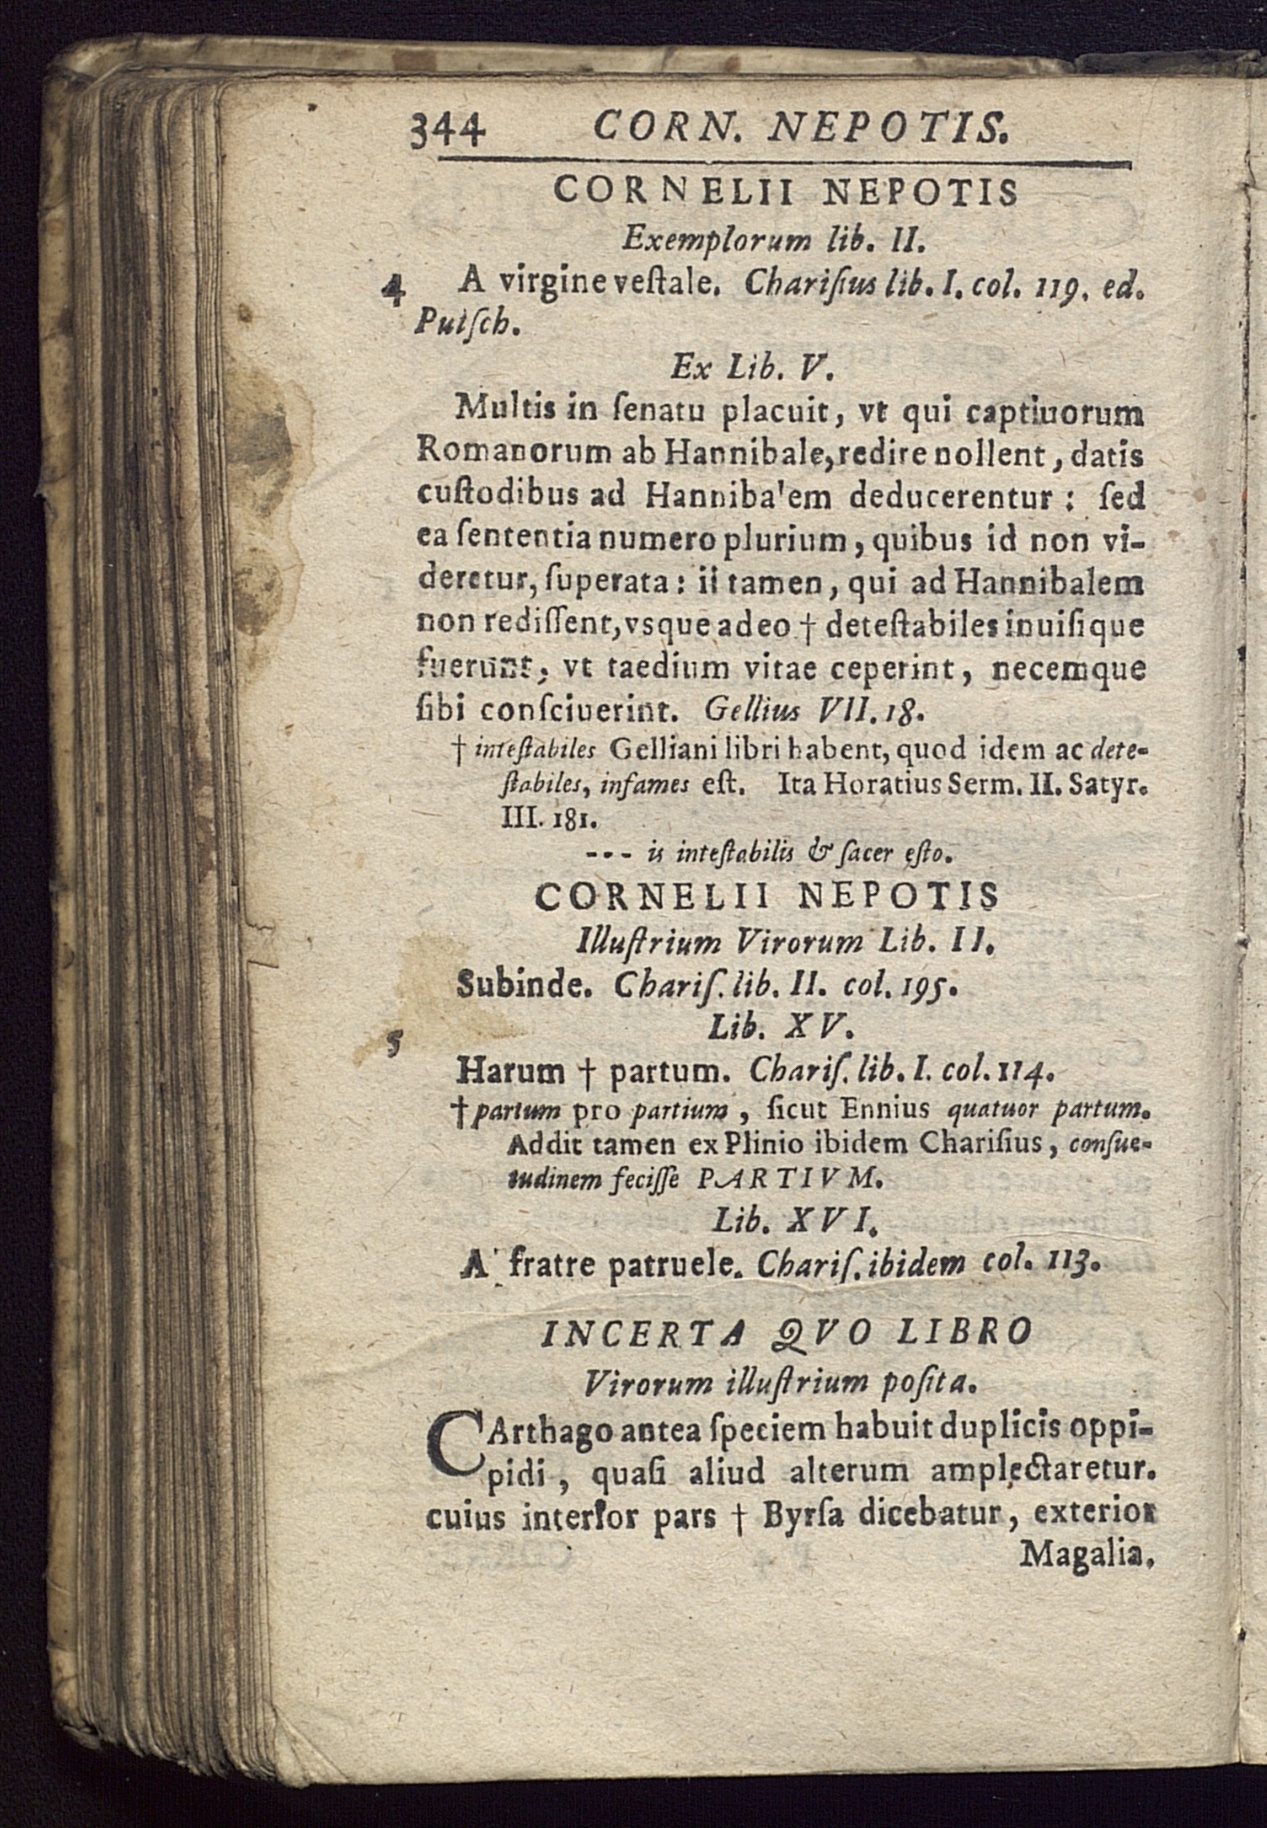 344 CORN. NEPOTIS.
CORNELII NEPOTIS
Exemplorum lib. II.
4 A virgine veſtale. Chariſius lib. I. col. 119. ed.
Putſch.
Ex Lib. V.
Multis in ſenatu placuit, vt qui captiuorum
Romanorum ab Hannibale, redire nollent, datis
cuſtodibus ad Hanniba'em deducerentur: ſed
ea ſententia numero plurium, quibus id non vi-
deretur, ſuperata: ii tamen, qui ad Hannibalem
non rediſſent, vsque adeo † deteſtabiles inuiſique
fuerunt, vt taedium vitae ceperint, necemque
ſibi conſciuerint. Gellius VII. 18.
† inteſtabiles Gelliani libri habent, quod idem ac dete-
ſtabiles, infames eſt. Ita Horatius Serm. II. Satyr.
III. 181.
--- is inteſtabilis & ſacer eſto.
CORNELII NEPOTIS
Illuſtrium Virorum Lib. II.
Subinde. Chariſ. lib. II. col. 195.
5 Lib. XV.
Harum † partum. Chariſ. lib. I. col. 114.
† partum pro partium, ſicut Ennius quatuor partum.
Addit tamen ex Plinio ibidem Chariſius, conſue-
tudinem feciſſe PARTIVM.
Lib. XVI.
A fratre patruele. Chariſ. ibidem col. 113.
INCERTA QVO LIBRO
Virorum illuſtrium poſita.
CArthago antea ſpeciem habuit duplicis oppi-
pidi, quaſi aliud alterum amplectaretur.
cuius interior pars † Byrſa dicebatur, exterior
Magalia.